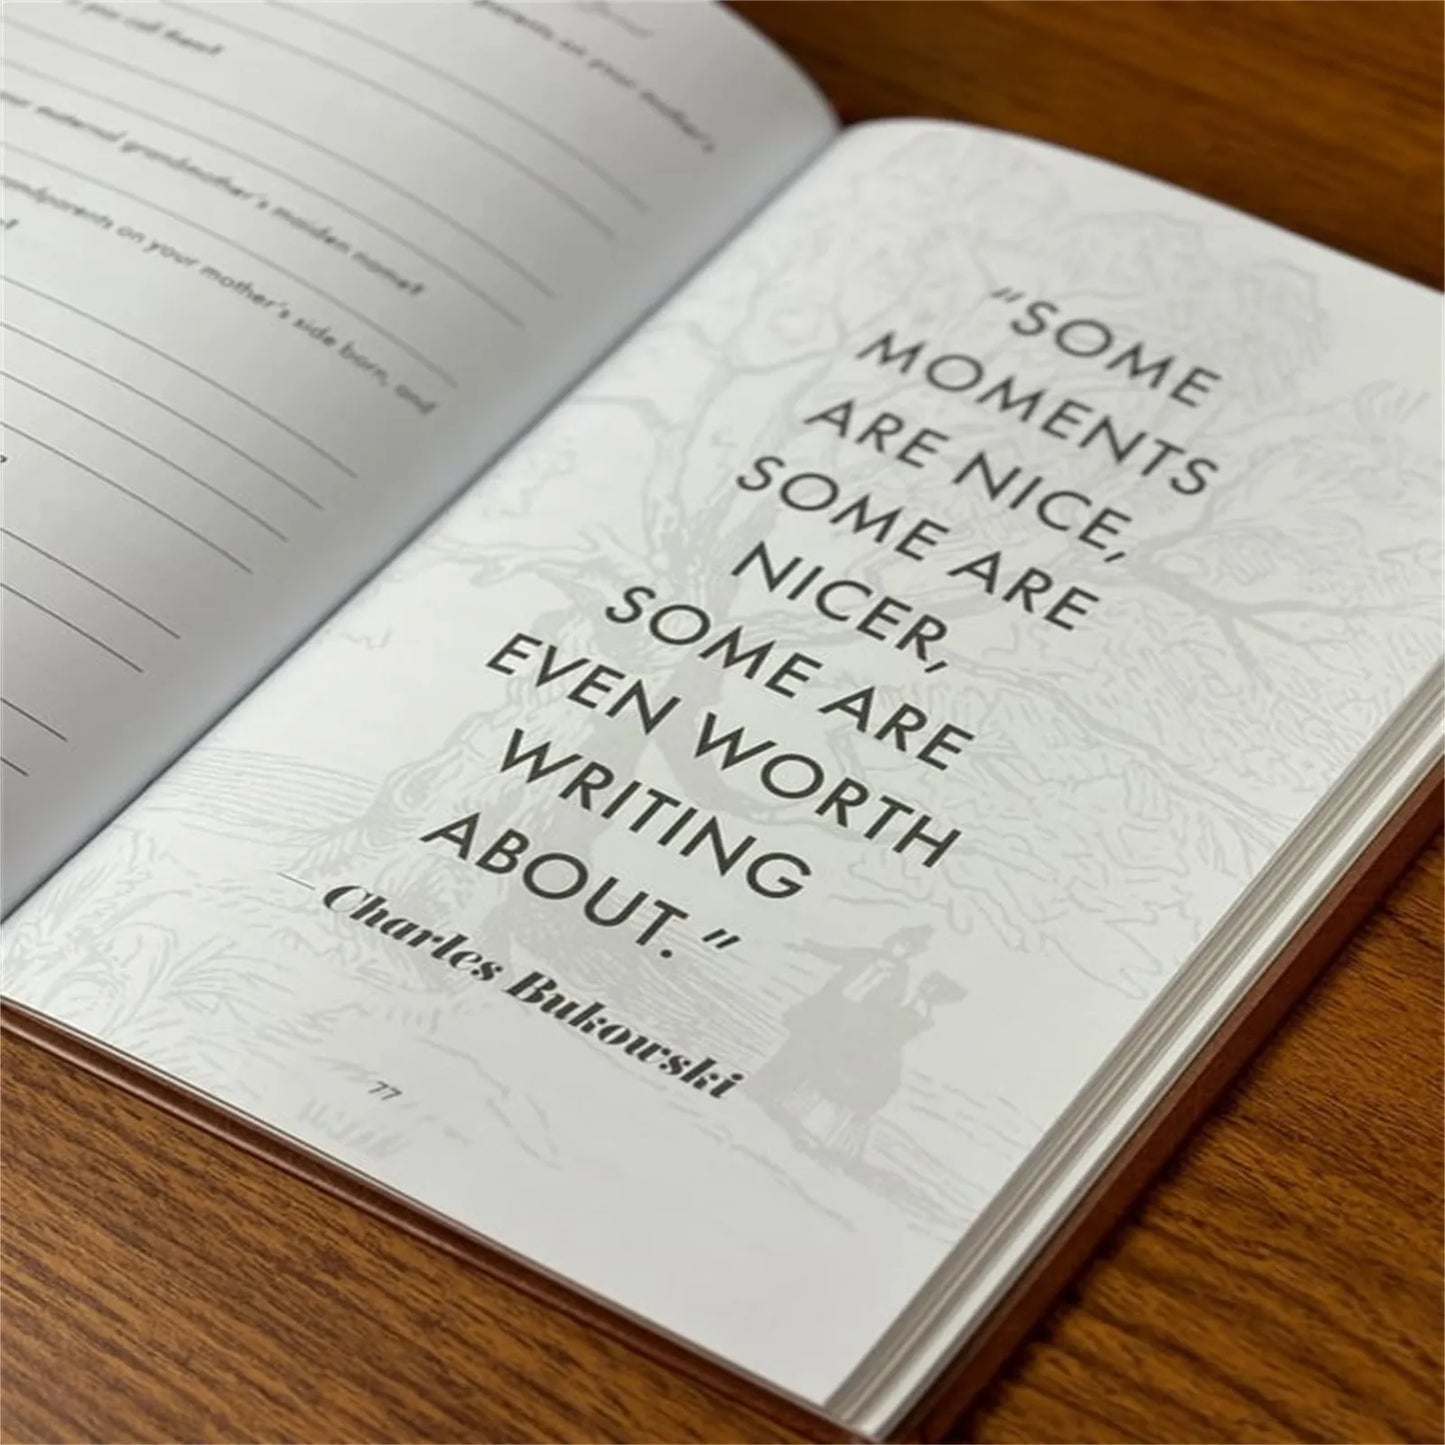 parents on your mother's
you call them?
maternal grandmother's maiden name?
grandparents on your mother's side born, and
"SOME
MOMENTS
ARE NICE,
SOME ARE
NICER,
SOME ARE
EVEN WORTH
WRITING
ABOUT."
—Charles Bukowski
77